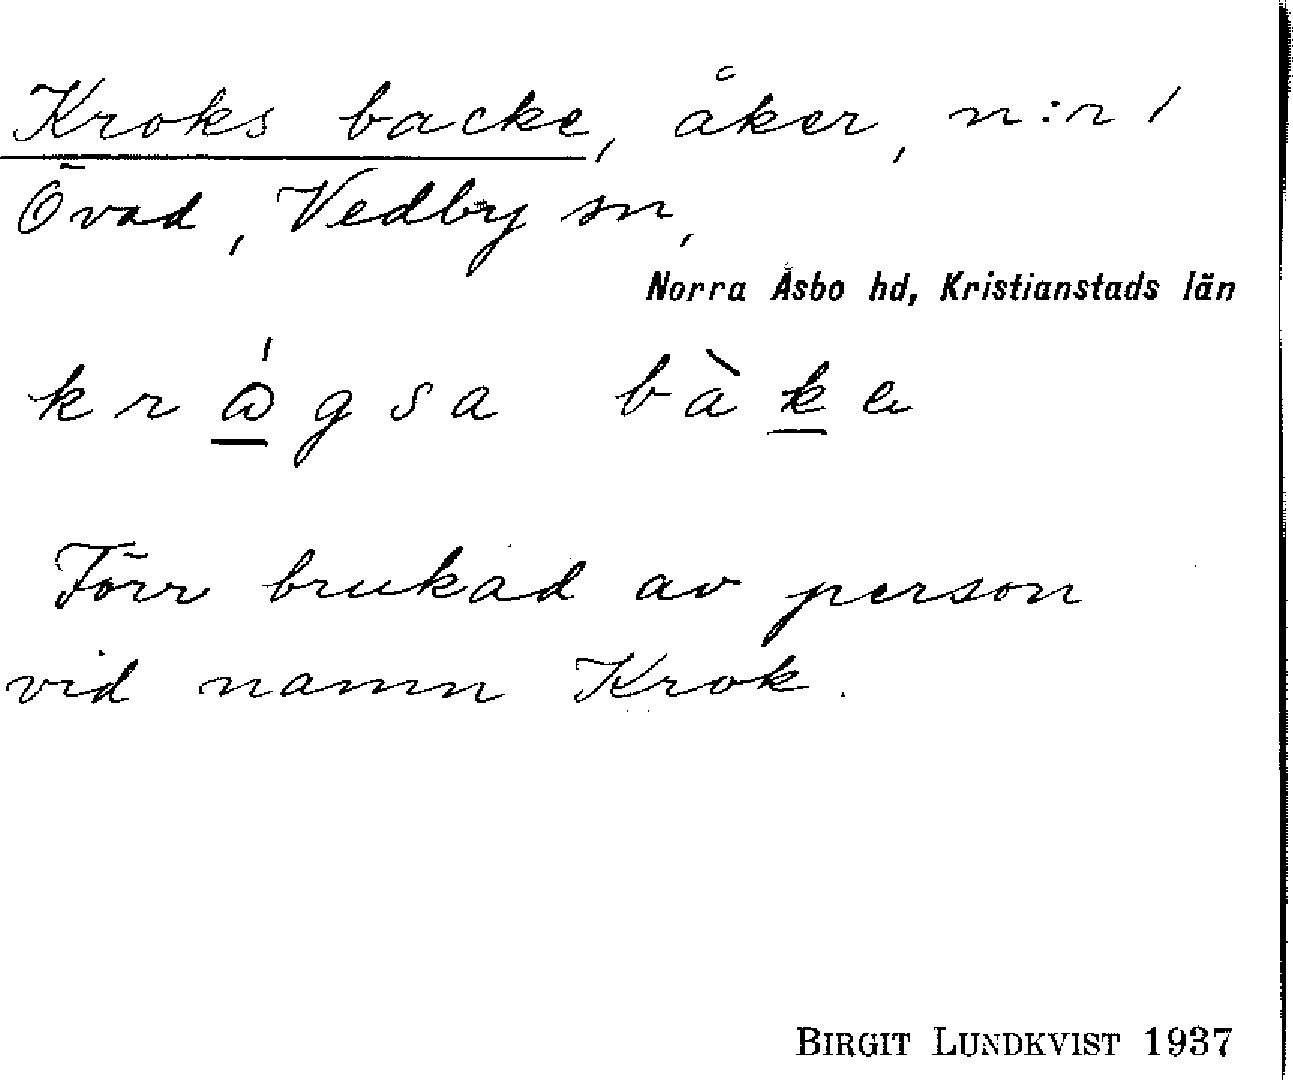 Kroks backe, åker, n:r 1
Övad, Vedby sn,
Norra Åsbo hd, Kristianstads län
bàke
Förr brukad av person
vid namn Krok.
BIRGIT LUNDKVIST 1937